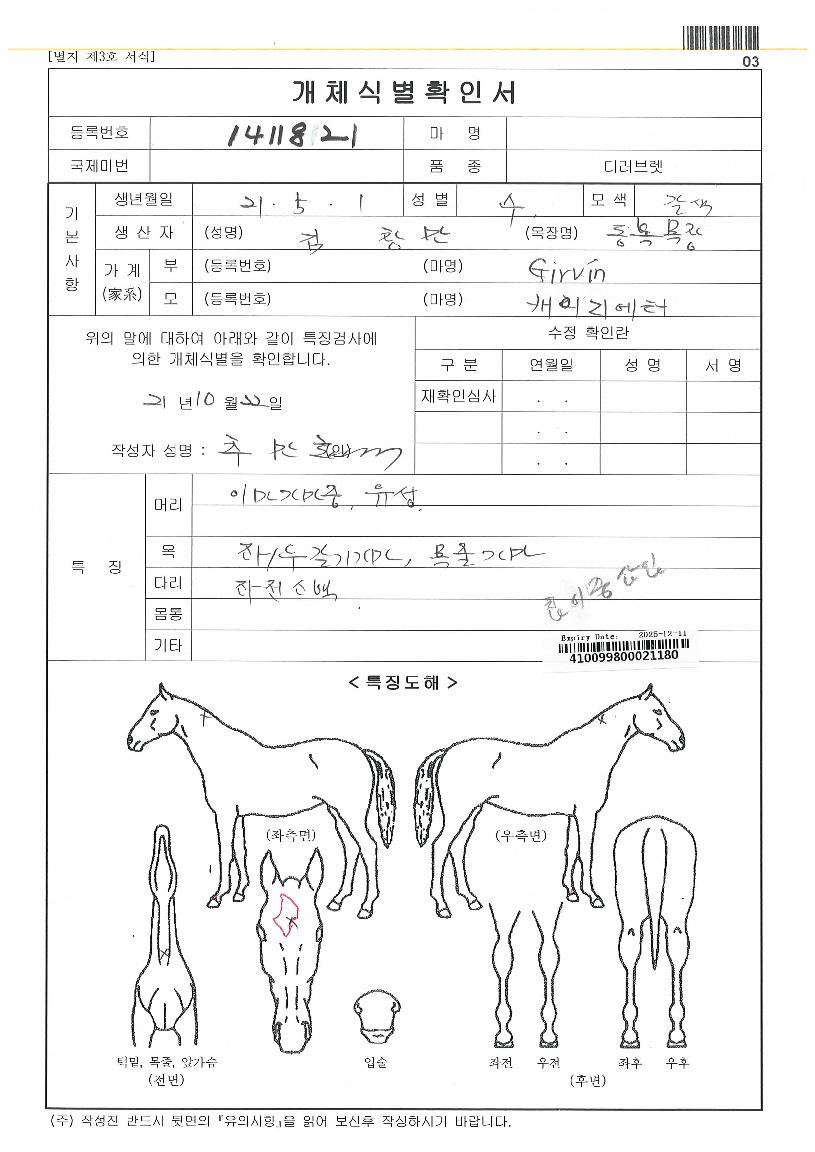 [별지 제3호 서식]
03
개체식별확인서
등록번호 1411821 마 명
국제마번 품 종 더러브렛
기본사항
생년월일 21. 5. 1 성 별 수 모 색 갈색
생 산 자 (성명) 김 창 만 (목장명) 동목목장
가 계 (家系) 부 (등록번호) (마명) Girvin
모 (등록번호) (마명) 캐의리에터
위의 말에 대하여 아래와 같이 특징검사에
의한 개체식별을 확인합니다.
21 년 10 월 22 일
작성자 성명 :
수정 확인란
구 분 연월일 성 명 서 명
재확인심사 . .
. .
. .
특 징
머리 이마가마중, 유성
목 좌/우갈기가마, 목줄가마
다리 좌전소백
몸통
기타
Expiry Date: 2025-12-11
410099800021180
< 특징도해 >
(좌측면) (우측면)
턱밑, 목줄, 앞가슴
(전면)
입술
좌전 우전 좌후 우후
(후면)
(주) 작성전 반드시 뒷면의 『유의사항』을 읽어 보신후 작성하시기 바랍니다.